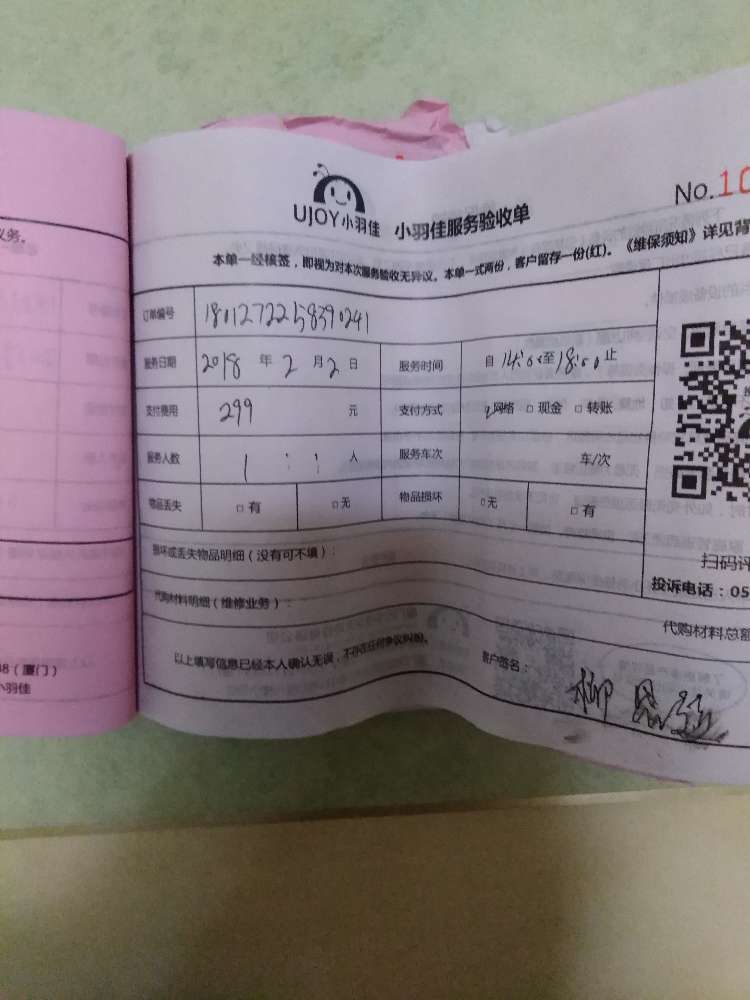 义务。
08（厦门）
小羽佳
UJOY小羽佳 小羽佳服务验收单
No.10
本单一经核签，即视为对本次服务验收无异议。本单一式两份，客户留存一份(红)。《维保须知》详见背
订单编号 1801272258390241
服务日期 2018 年 2 月 2 日 服务时间 自 14:00至18:00止
支付费用 299 元 支付方式 网络 □ 现金 □ 转账
服务人数 1 人 服务车次 车/次
物品丢失 □ 有 □ 无 物品损坏 □无 □ 有
损坏或丢失物品明细（没有可不填）：
代购材料明细（维修业务）：
扫码评
投诉电话：05
代购材料总额
以上填写信息已经本人确认无误，不存在任何争议纠纷。
客户签名：
柳